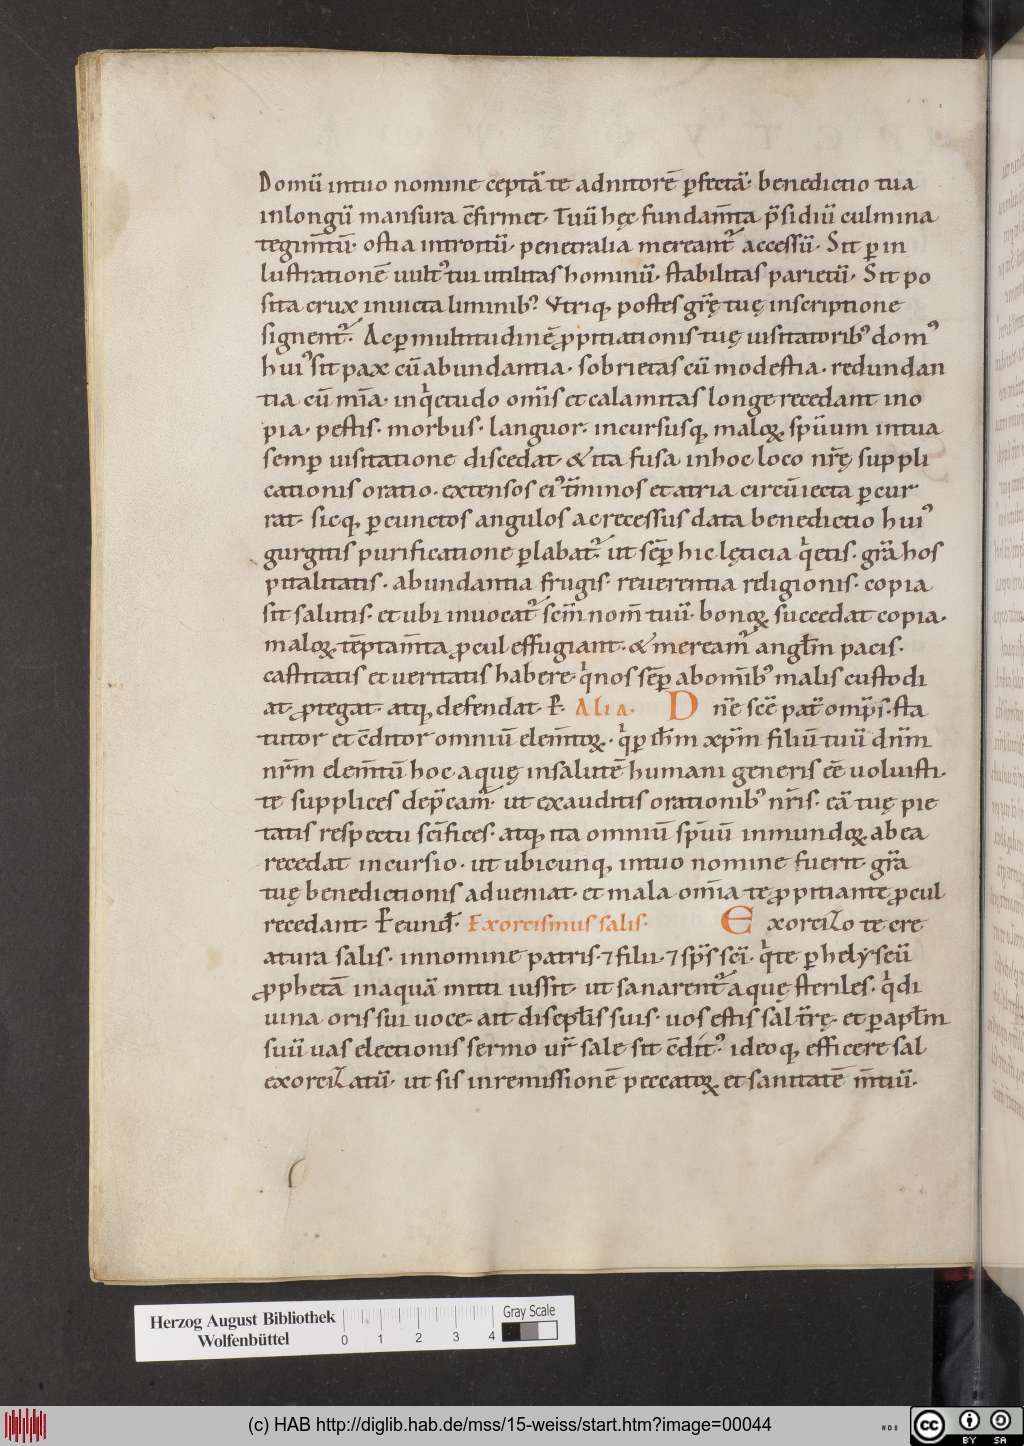 Domū intuo nomine ceptā te adiutorē ꝑfectā· benedictio tua
inlongū mansura c̄firmet· Tuū hęc fundam̄ta p̄sidiū culmina
tegim̄tū· ostia introitū· penetralia mereant᷑ accessū· Sit ꝑ in
lustrationē uult᷒ tui utilitas hominū· stabilitas parietū· Sit po
sita crux inuicta liminib᷒ Vtriq; postes gr̄ę tuę inscriptione
signent᷑· Ac ꝑ multitudinē ꝓpitiationis tuę uisitatorib᷒ dom᷒
hui᷒ sit pax cū abundantia· sobrietas cū modestia· redundan
tia cū mīa· inqͥetudo om̄is et calamitas longe recedant ino
pia· pestis· morbus· languor· incursusq; maloꝝ sp̄uum intua
semꝑ uisitatione discedat· & ita fusa inhoc loco nr̄ę suppli
cationis oratio· extensos ei᷒ t̄minos et atria circūiecta ꝑcur
rat· sicq; ꝑ cunctos angulos ac recessus data benedictio hui᷒
gurgitis purificatione ꝑlabat᷑· ut sēꝑ hic lęticia qͥetis· gr̄a hos
pitalitatis· abundantia frugis· reuerentia religionis· copia
sit salutis· et ubi inuocat᷑ sc̄m nom̄ tuū· bonoꝝ succedat copia·
maloꝝ tēptam̄ta ꝓcul effugiant· & meream᷑ angłm pacis·
castitatis et ueritatis habere· qͥ nos sēꝑ abom̄ib᷒ malis custodi
at ꝓtegat· atq; defendat· P̄· Alia· Dn̄e sc̄e pat̄ omp̄s· sta
tutor et c̄ditor omniū elem̄toꝝ· qͥ ꝑ ih̄m xp̄m filiū tuū dn̄m
nr̄m elem̄tū hoc aquę insalutē humani generis eē uoluisti·
te supplices dep̄cam᷑· ut exauditis orationib᷒ nr̄is· eā tuę pie
tatis respectu sc̄ifices· atq; ita omniū sp̄uū inmundoꝝ ab ea
recedat incursio· ut ubicunq; intuo nomine fuerit· gr̄a
tuę benedictionis adueniat· et mala om̄ia te ꝓpitiante ꝓcul
recedant· P̄ eund̄· Exorcismus salis· Exorcizo te cre
atura salis· innomine patris· ⁊ filii· ⁊ sp̄s sc̄i· qͥ te ꝑ helyseū
ꝓphetā inaquā mitti iussit· ut sanarent᷑ aquę steriles· qͥ di
uina oris sui uoce· ait discipl̄is suis· uos estis sal t̄rę· et ꝑ apłm
suū uas electionis sermo ur̄ sale sit c̄dit᷒· ideoq; efficere sal
exorcizatū· ut sis inremissionē peccatoꝝ et sanitatē m̄tiū·
Herzog August Bibliothek
Wolfenbüttel
0 1 2 3 4
Gray Scale
(c) HAB http://diglib.hab.de/mss/15-weiss/start.htm?image=00044
cc BY SA